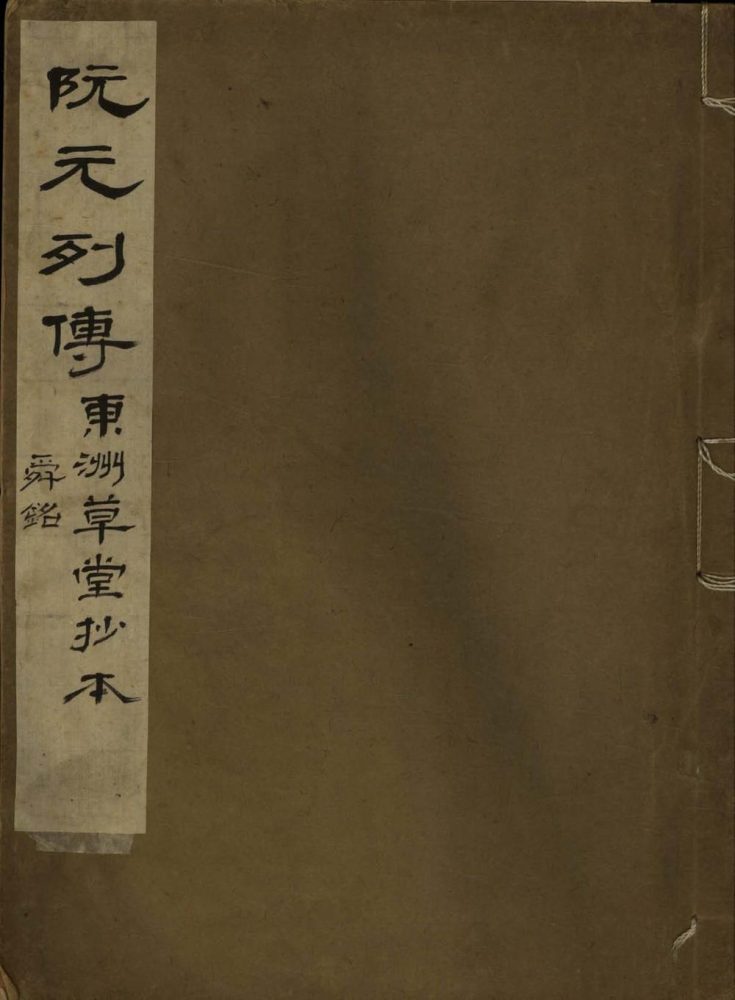 阮元列傳
東洲草堂抄本
舜銘